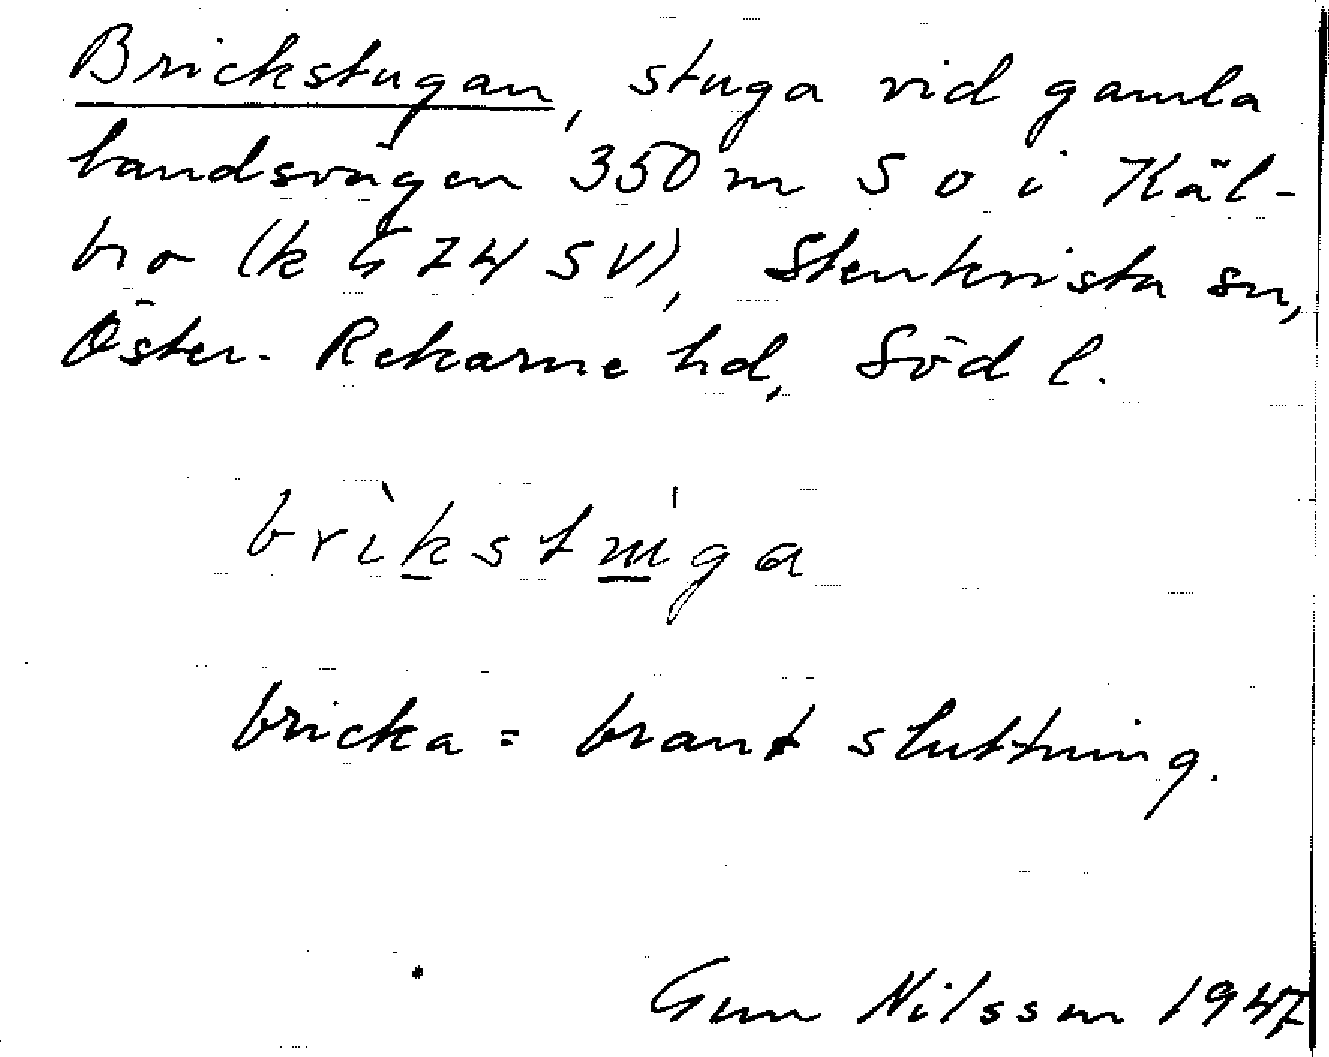 Brickstugan, stuga vid gamla
landsvägen 350 m S o i Käl-
bro (k G 74 SV), Stenkvista sn,
Öster-Rekarne hd, Södl.
brìkstuga
bricka = brant sluttning.
Gun Nilsson 1947